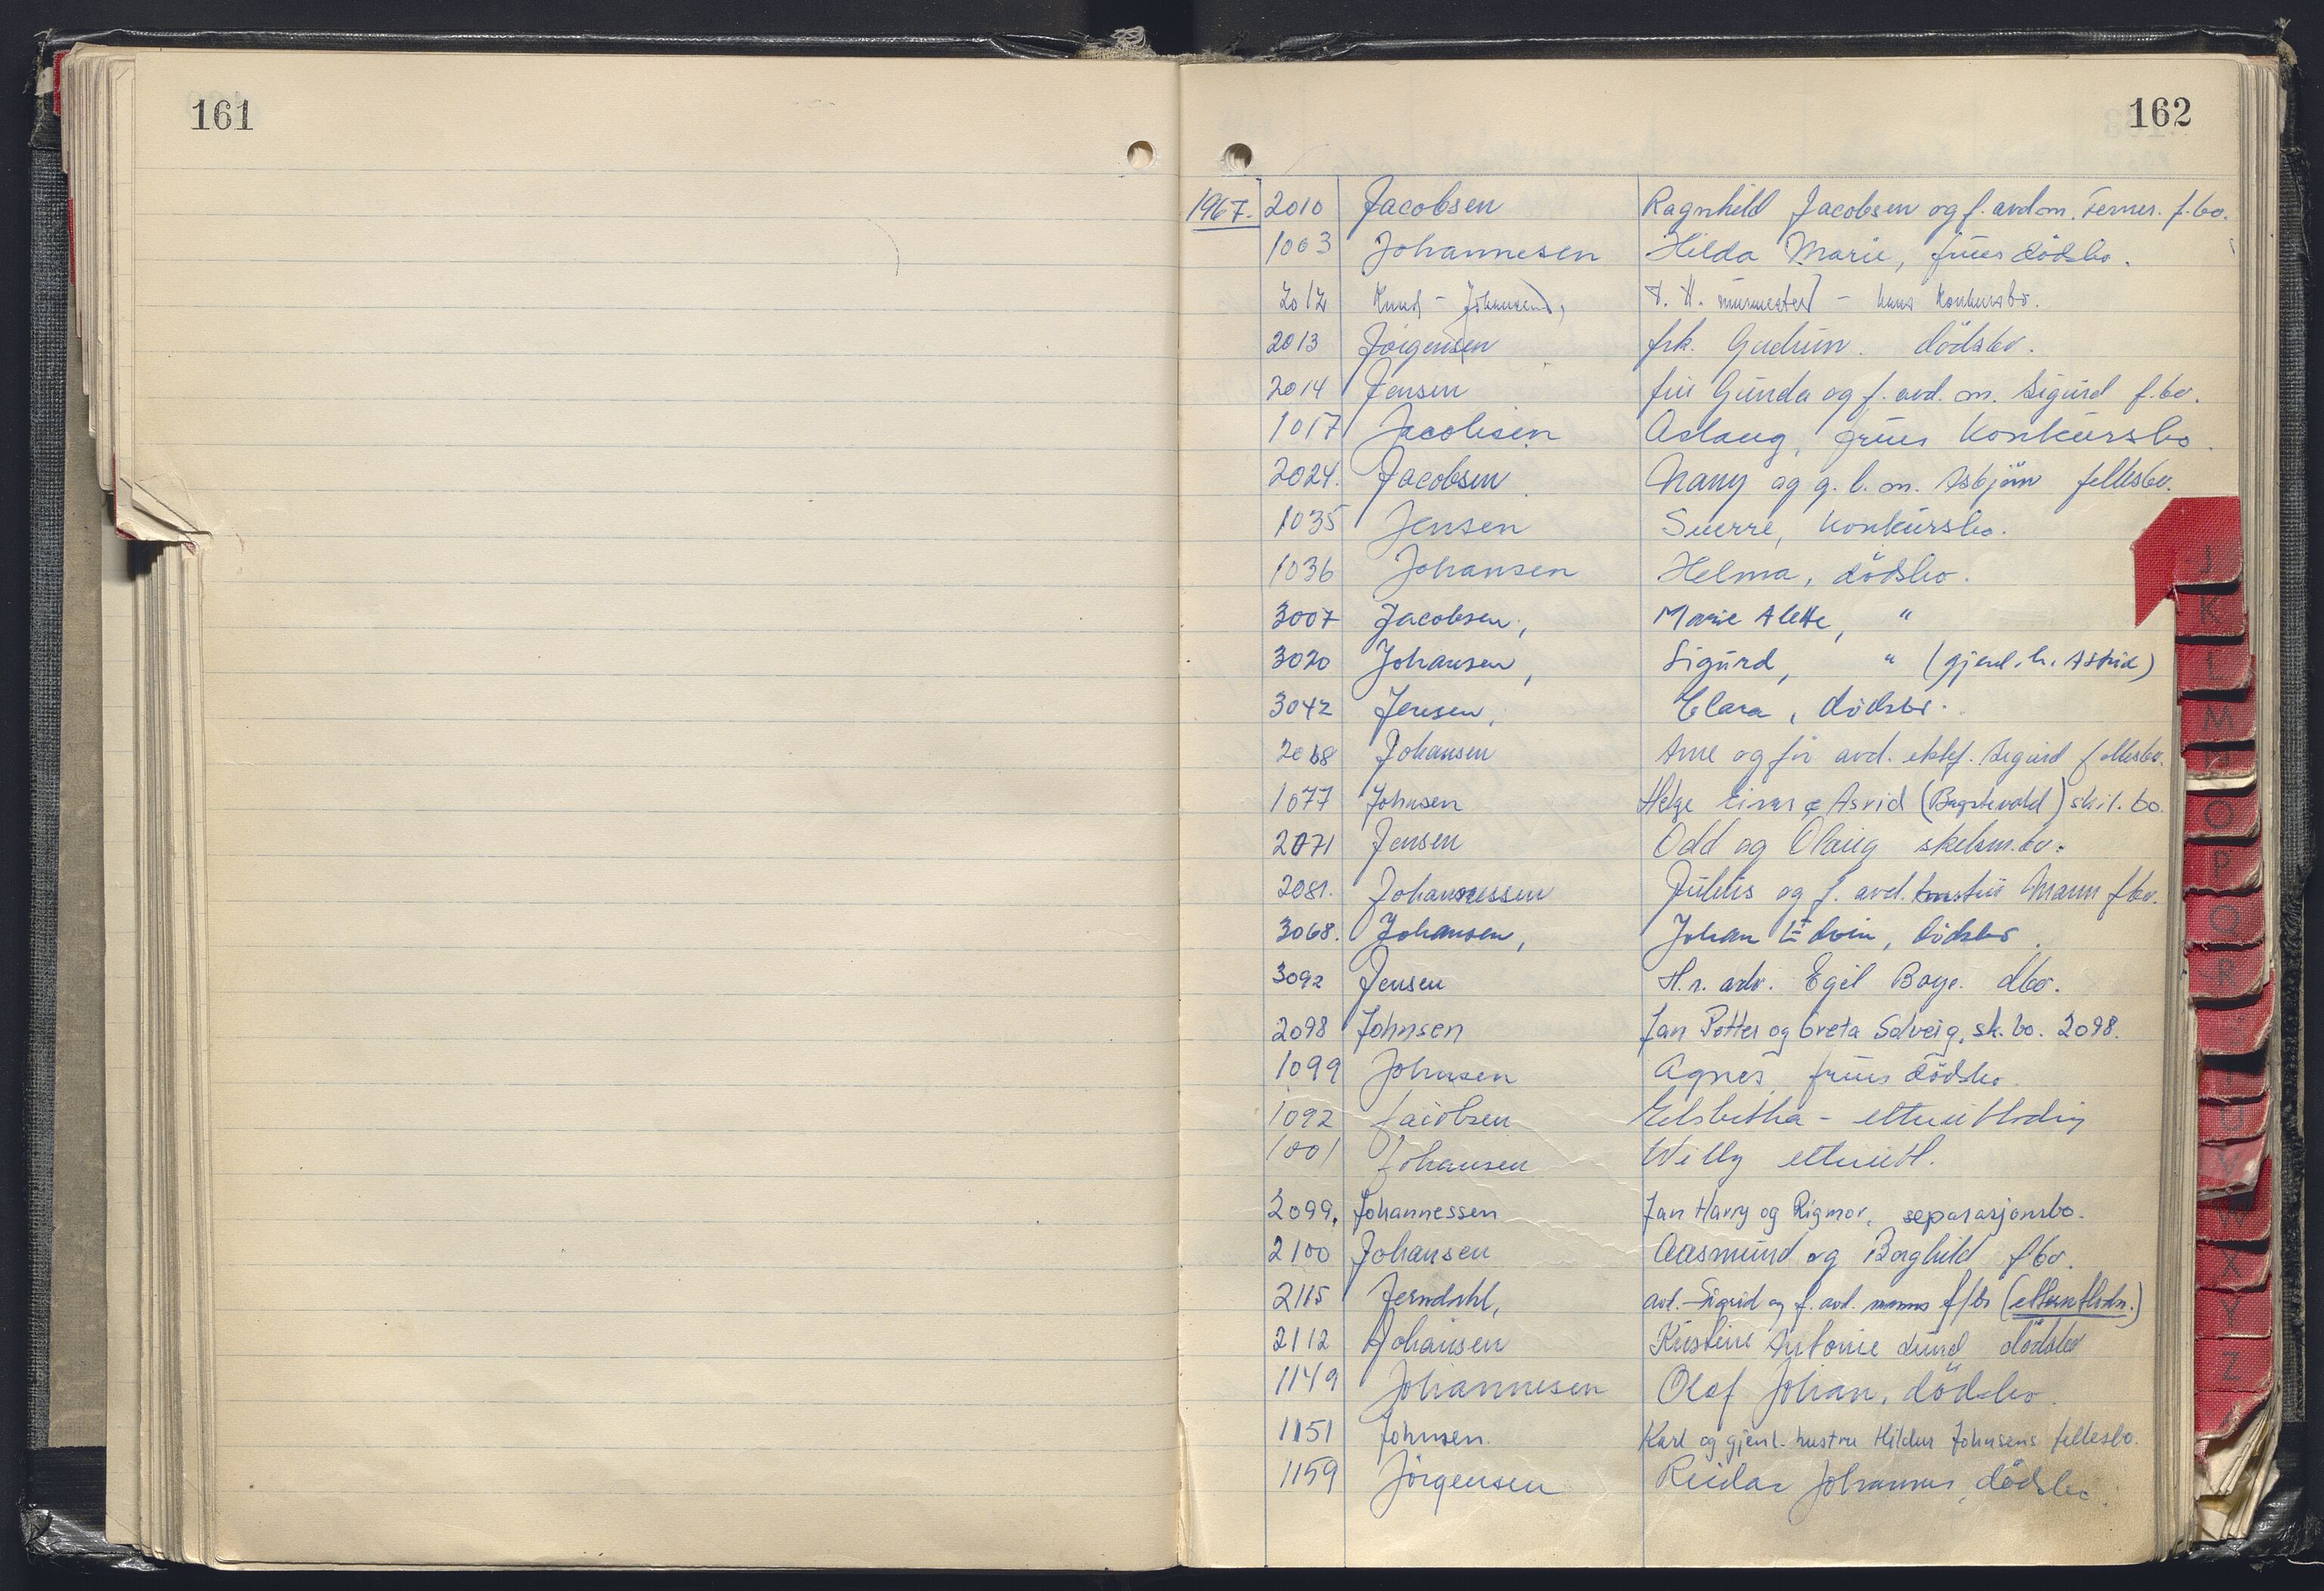 161
162
1967. 2010 Jacobsen Ragnhild Jacobsen og f. avd. m. f. bo.
1003 Johannesen Hilda Marie, frues dödsbo.
2012 Knud - Johansen, murmester - hans Konkursbo.
2013 Jörgensen frk. Gudrun. dödsbo.
2014 Jensen fru Gunda og f. avd. m. Sigurd f. bo.
1017 Jacobsen Aslaug, frues Konkursbo.
2024. Jacobsen Nany og g. l. m. Asbjörn fellesbo.
1035 Jensen Sverre, konkursbo.
1036 Johansen Helma, dödsbo.
3007 Jacobsen, Marie Alette, "
3020 Johansen, Sigurd, " (gjenl. h. Astrid)
3042 Jensen, Clara, dödsbo.
2068 Johansen Arne og for avd. ektef. Sigurd fellesbo.
1077 Johnsen Helge Einar & Asvid (Bagstevold) skil. bo.
2071 Jensen Odd og Olaug skilsm. bo.
2081. Johannessen Julius og f. avd. hustru f bo.
3068. Johansen, Johan Edvin, dödsbo.
3092 Jensen H. r. adv. Egil Boye. dbo.
2098 Johnsen Jan Petter og Greta Solveig, sk. bo. 2098.
1099 Johnsen Agnes, frues dödsbo.
1092 Jacobsen Elsbetha - etterutlodn
1001 Johansen Willy etterutl.
2099. Johannessen Jan Harry og Rigmor, separasjonsbo.
2100 Johansen Aasmund og Borghild f bo.
2115 Jerndahl, avd. Sigrid og f. avd. manns f/bo (etterutlodn.)
2112 Johansen Kristine Antonie Lund dödsbo
1149 Johannesen Olaf Johan, dödsbo.
1151 Johnsen. Karl og gjenl. hustru Hildur Johnsens fellesbo.
1159 Jörgensen Reidar Johannes, dödsbo.
J
K
L
M
N
O
P
Q
R
S
T
U
V
W
X
Y
Z